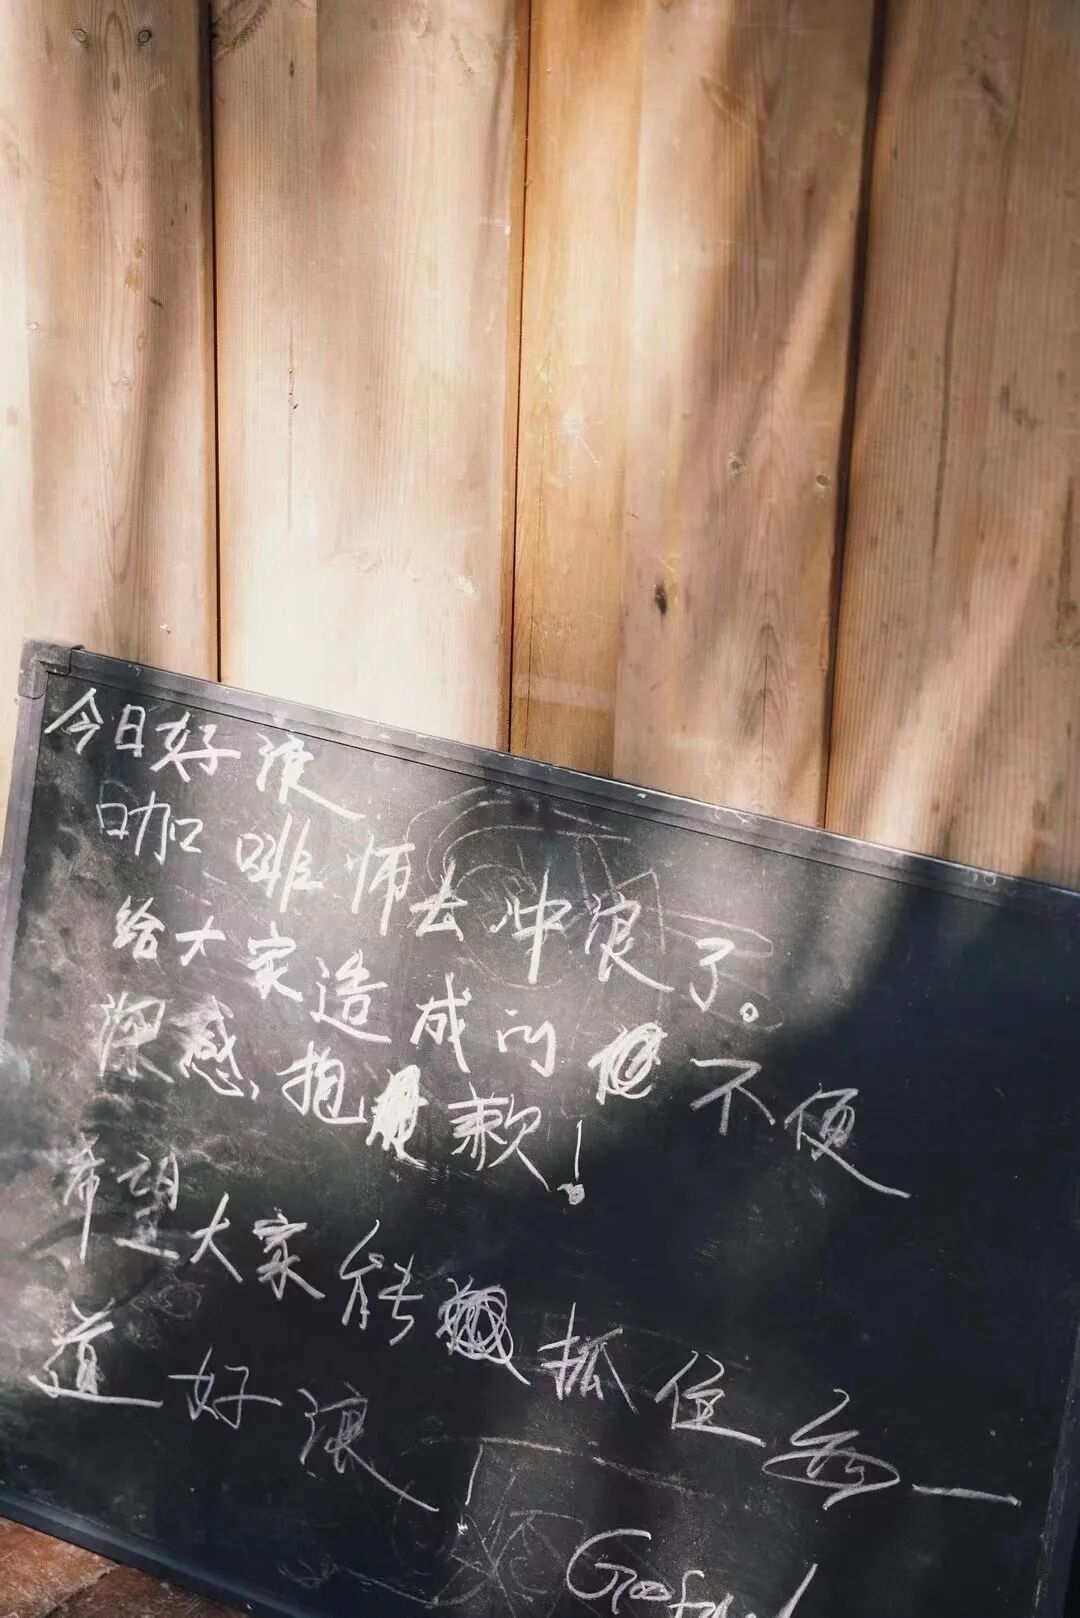 今日好浪
咖啡师去冲浪了。
给大家造成的不便
深感抱歉!
希望大家能抓住每一
道好浪!